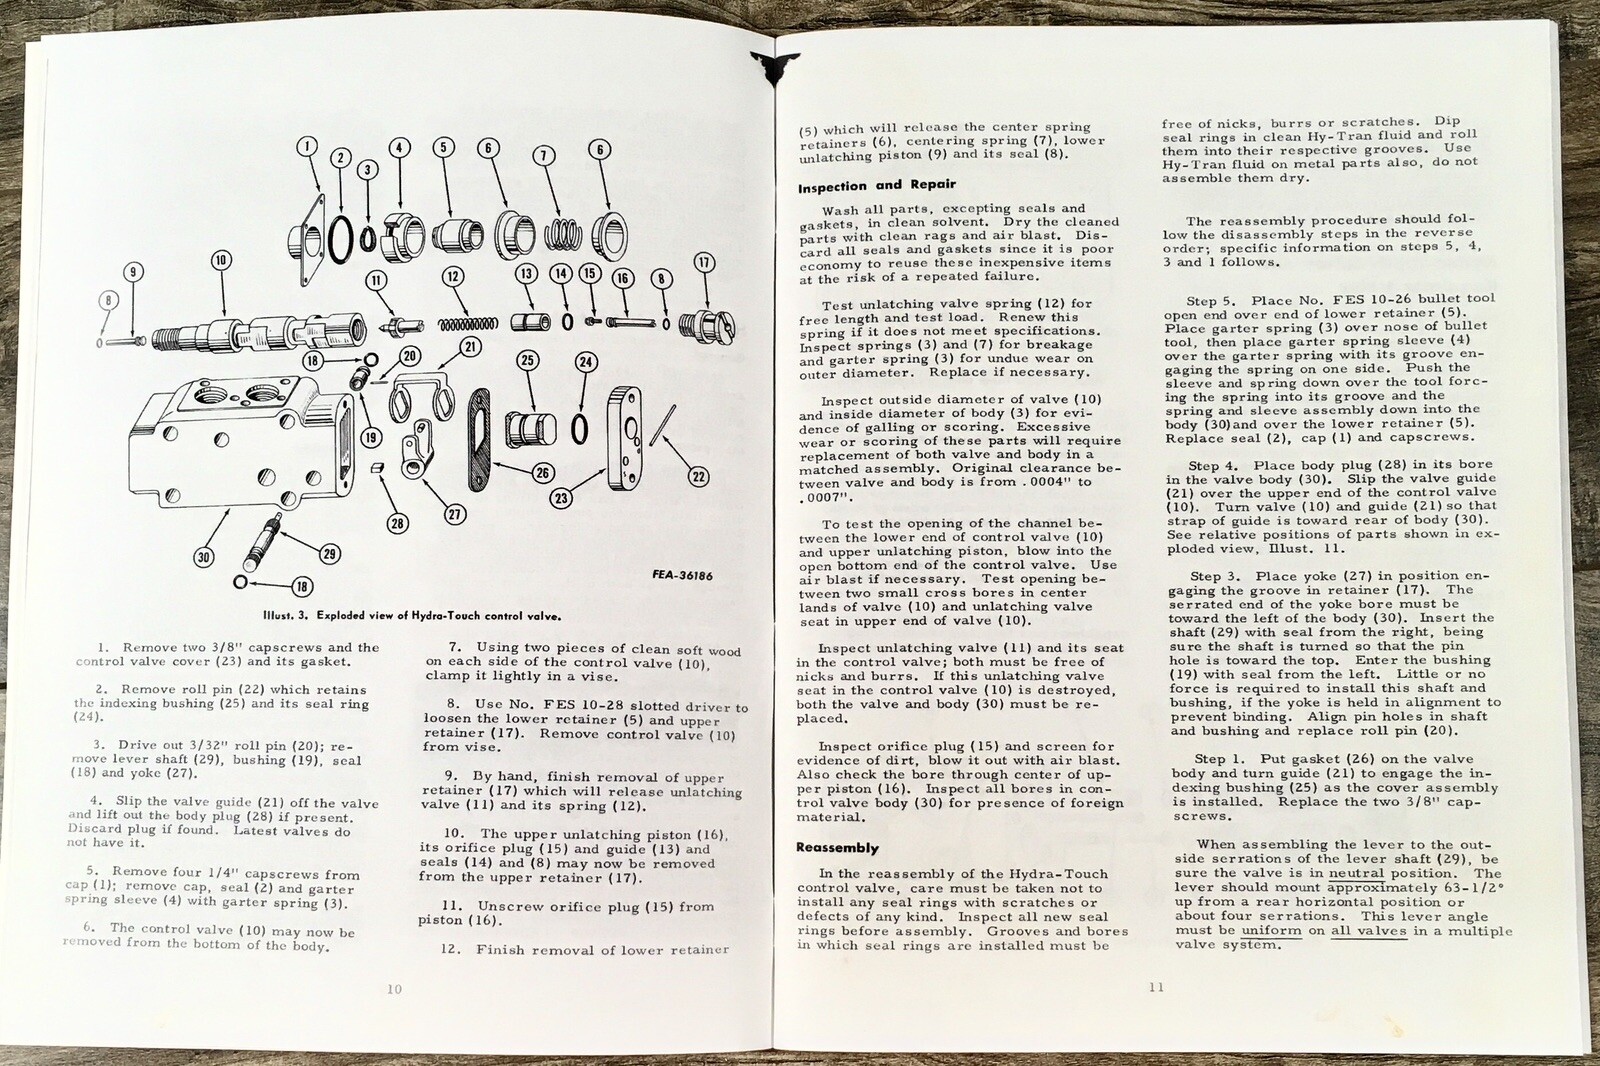 1
2
3
4
5
6
7
6
8
9
10
11
12
13
14
15
16
8
17
18
20
21
25
24
19
26
23
22
28
27
30
29
18
FEA-36186
Illust. 3. Exploded view of Hydra-Touch control valve.
1. Remove two 3/8" capscrews and the
control valve cover (23) and its gasket.
2. Remove roll pin (22) which retains
the indexing bushing (25) and its seal ring
(24).
3. Drive out 3/32" roll pin (20); re-
move lever shaft (29), bushing (19), seal
(18) and yoke (27).
4. Slip the valve guide (21) off the valve
and lift out the body plug (28) if present.
Discard plug if found. Latest valves do
not have it.
5. Remove four 1/4" capscrews from
cap (1); remove cap, seal (2) and garter
spring sleeve (4) with garter spring (3).
6. The control valve (10) may now be
removed from the bottom of the body.
7. Using two pieces of clean soft wood
on each side of the control valve (10),
clamp it lightly in a vise.
8. Use No. FES 10-28 slotted driver to
loosen the lower retainer (5) and upper
retainer (17). Remove control valve (10)
from vise.
9. By hand, finish removal of upper
retainer (17) which will release unlatching
valve (11) and its spring (12).
10. The upper unlatching piston (16),
its orifice plug (15) and guide (13) and
seals (14) and (8) may now be removed
from the upper retainer (17).
11. Unscrew orifice plug (15) from
piston (16).
12. Finish removal of lower retainer
10
(5) which will release the center spring
retainers (6), centering spring (7), lower
unlatching piston (9) and its seal (8).
Inspection and Repair
Wash all parts, excepting seals and
gaskets, in clean solvent. Dry the cleaned
parts with clean rags and air blast. Dis-
card all seals and gaskets since it is poor
economy to reuse these inexpensive items
at the risk of a repeated failure.
Test unlatching valve spring (12) for
free length and test load. Renew this
spring if it does not meet specifications.
Inspect springs (3) and (7) for breakage
and garter spring (3) for undue wear on
outer diameter. Replace if necessary.
Inspect outside diameter of valve (10)
and inside diameter of body (3) for evi-
dence of galling or scoring. Excessive
wear or scoring of these parts will require
replacement of both valve and body in a
matched assembly. Original clearance be-
tween valve and body is from .0004" to
.0007".
To test the opening of the channel be-
tween the lower end of control valve (10)
and upper unlatching piston, blow into the
open bottom end of the control valve. Use
air blast if necessary. Test opening be-
tween two small cross bores in center
lands of valve (10) and unlatching valve
seat in upper end of valve (10).
Inspect unlatching valve (11) and its seat
in the control valve; both must be free of
nicks and burrs. If this unlatching valve
seat in the control valve (10) is destroyed,
both the valve and body (30) must be re-
placed.
Inspect orifice plug (15) and screen for
evidence of dirt, blow it out with air blast.
Also check the bore through center of up-
per piston (16). Inspect all bores in con-
trol valve body (30) for presence of foreign
material.
Reassembly
In the reassembly of the Hydra-Touch
control valve, care must be taken not to
install any seal rings with scratches or
defects of any kind. Inspect all new seal
rings before assembly. Grooves and bores
in which seal rings are installed must be
free of nicks, burrs or scratches. Dip
seal rings in clean Hy-Tran fluid and roll
them into their respective grooves. Use
Hy-Tran fluid on metal parts also, do not
assemble them dry.
The reassembly procedure should fol-
low the disassembly steps in the reverse
order; specific information on steps 5, 4,
3 and 1 follows.
Step 5. Place No. FES 10-26 bullet tool
open end over end of lower retainer (5).
Place garter spring (3) over nose of bullet
tool, then place garter spring sleeve (4)
over the garter spring with its groove en-
gaging the spring on one side. Push the
sleeve and spring down over the tool forc-
ing the spring into its groove and the
spring and sleeve assembly down into the
body (30)and over the lower retainer (5).
Replace seal (2), cap (1) and capscrews.
Step 4. Place body plug (28) in its bore
in the valve body (30). Slip the valve guide
(21) over the upper end of the control valve
(10). Turn valve (10) and guide (21) so that
strap of guide is toward rear of body (30).
See relative positions of parts shown in ex-
ploded view, Illust. 11.
Step 3. Place yoke (27) in position en-
gaging the groove in retainer (17). The
serrated end of the yoke bore must be
toward the left of the body (30). Insert the
shaft (29) with seal from the right, being
sure the shaft is turned so that the pin
hole is toward the top. Enter the bushing
(19) with seal from the left. Little or no
force is required to install this shaft and
bushing, if the yoke is held in alignment to
prevent binding. Align pin holes in shaft
and bushing and replace roll pin (20).
Step 1. Put gasket (26) on the valve
body and turn guide (21) to engage the in-
dexing bushing (25) as the cover assembly
is installed. Replace the two 3/8" cap-
screws.
When assembling the lever to the out-
side serrations of the lever shaft (29), be
sure the valve is in neutral position. The
lever should mount approximately 63-1/2°
up from a rear horizontal position or
about four serrations. This lever angle
must be uniform on all valves in a multiple
valve system.
11